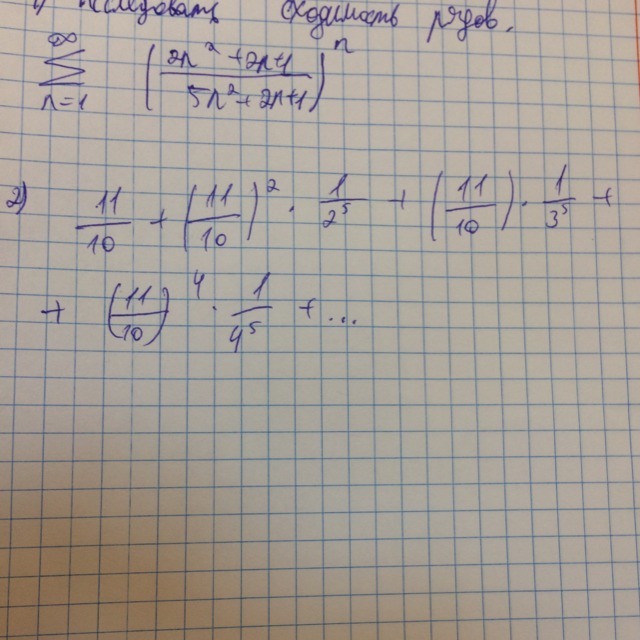 1) Исследовать сходимость рядов.
∞
∑ ( (2n² + 2n+1) / (5n² + 2n+1) )ⁿ
n=1
2) 11/10 + (11/10)² · 1/2⁵ + (11/10) · 1/3⁵ +
+ (11/10)⁴ · 1/4⁵ + ...